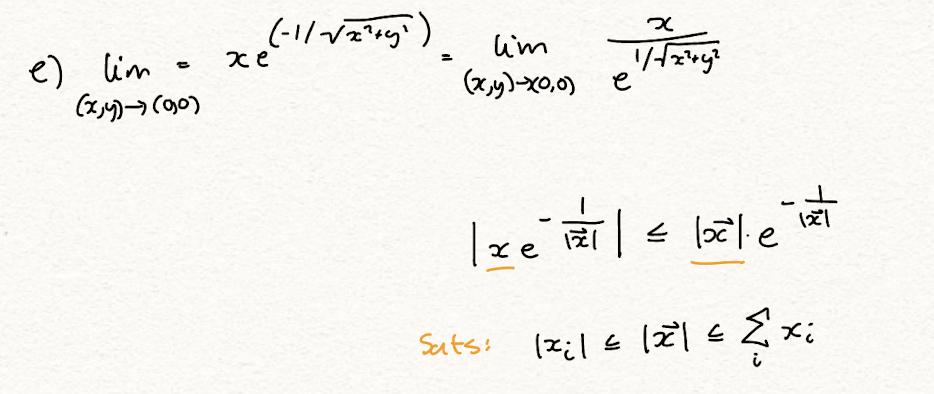 e) lim_{(x,y)→(0,0)} = x e^{(-1/√x²+y²)} = lim_{(x,y)→(0,0)} x / e^{1/√x²+y²}
|x e^{-1/|x⃗|}| ≤ |x⃗| · e^{-1/|x⃗|}
Sats: |x_i| ≤ |x⃗| ≤ Σ_i x_i